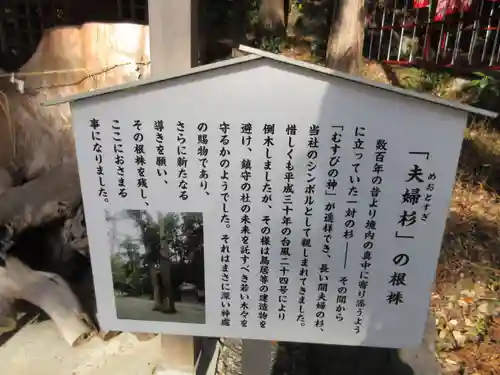 「夫婦杉」の根株
めおとすぎ
数百年の昔より境内の真中に寄り添うよう
に立っていた一対の杉――その間から
「むすびの神」が遥拝でき、長い間夫婦の杉、
当社のシンボルとして親しまれてきました。
惜しくも平成三十年の台風二十四号により
倒木しましたが、その様は鳥居等の建造物を
避け、鎮守の杜の未来を託すべき若い木々を
守るかのようでした。それはまさに深い神慮
の賜物であり、
さらに新たなる
導きを願い、
その根株を残し、
ここにおさまる
事になりました。